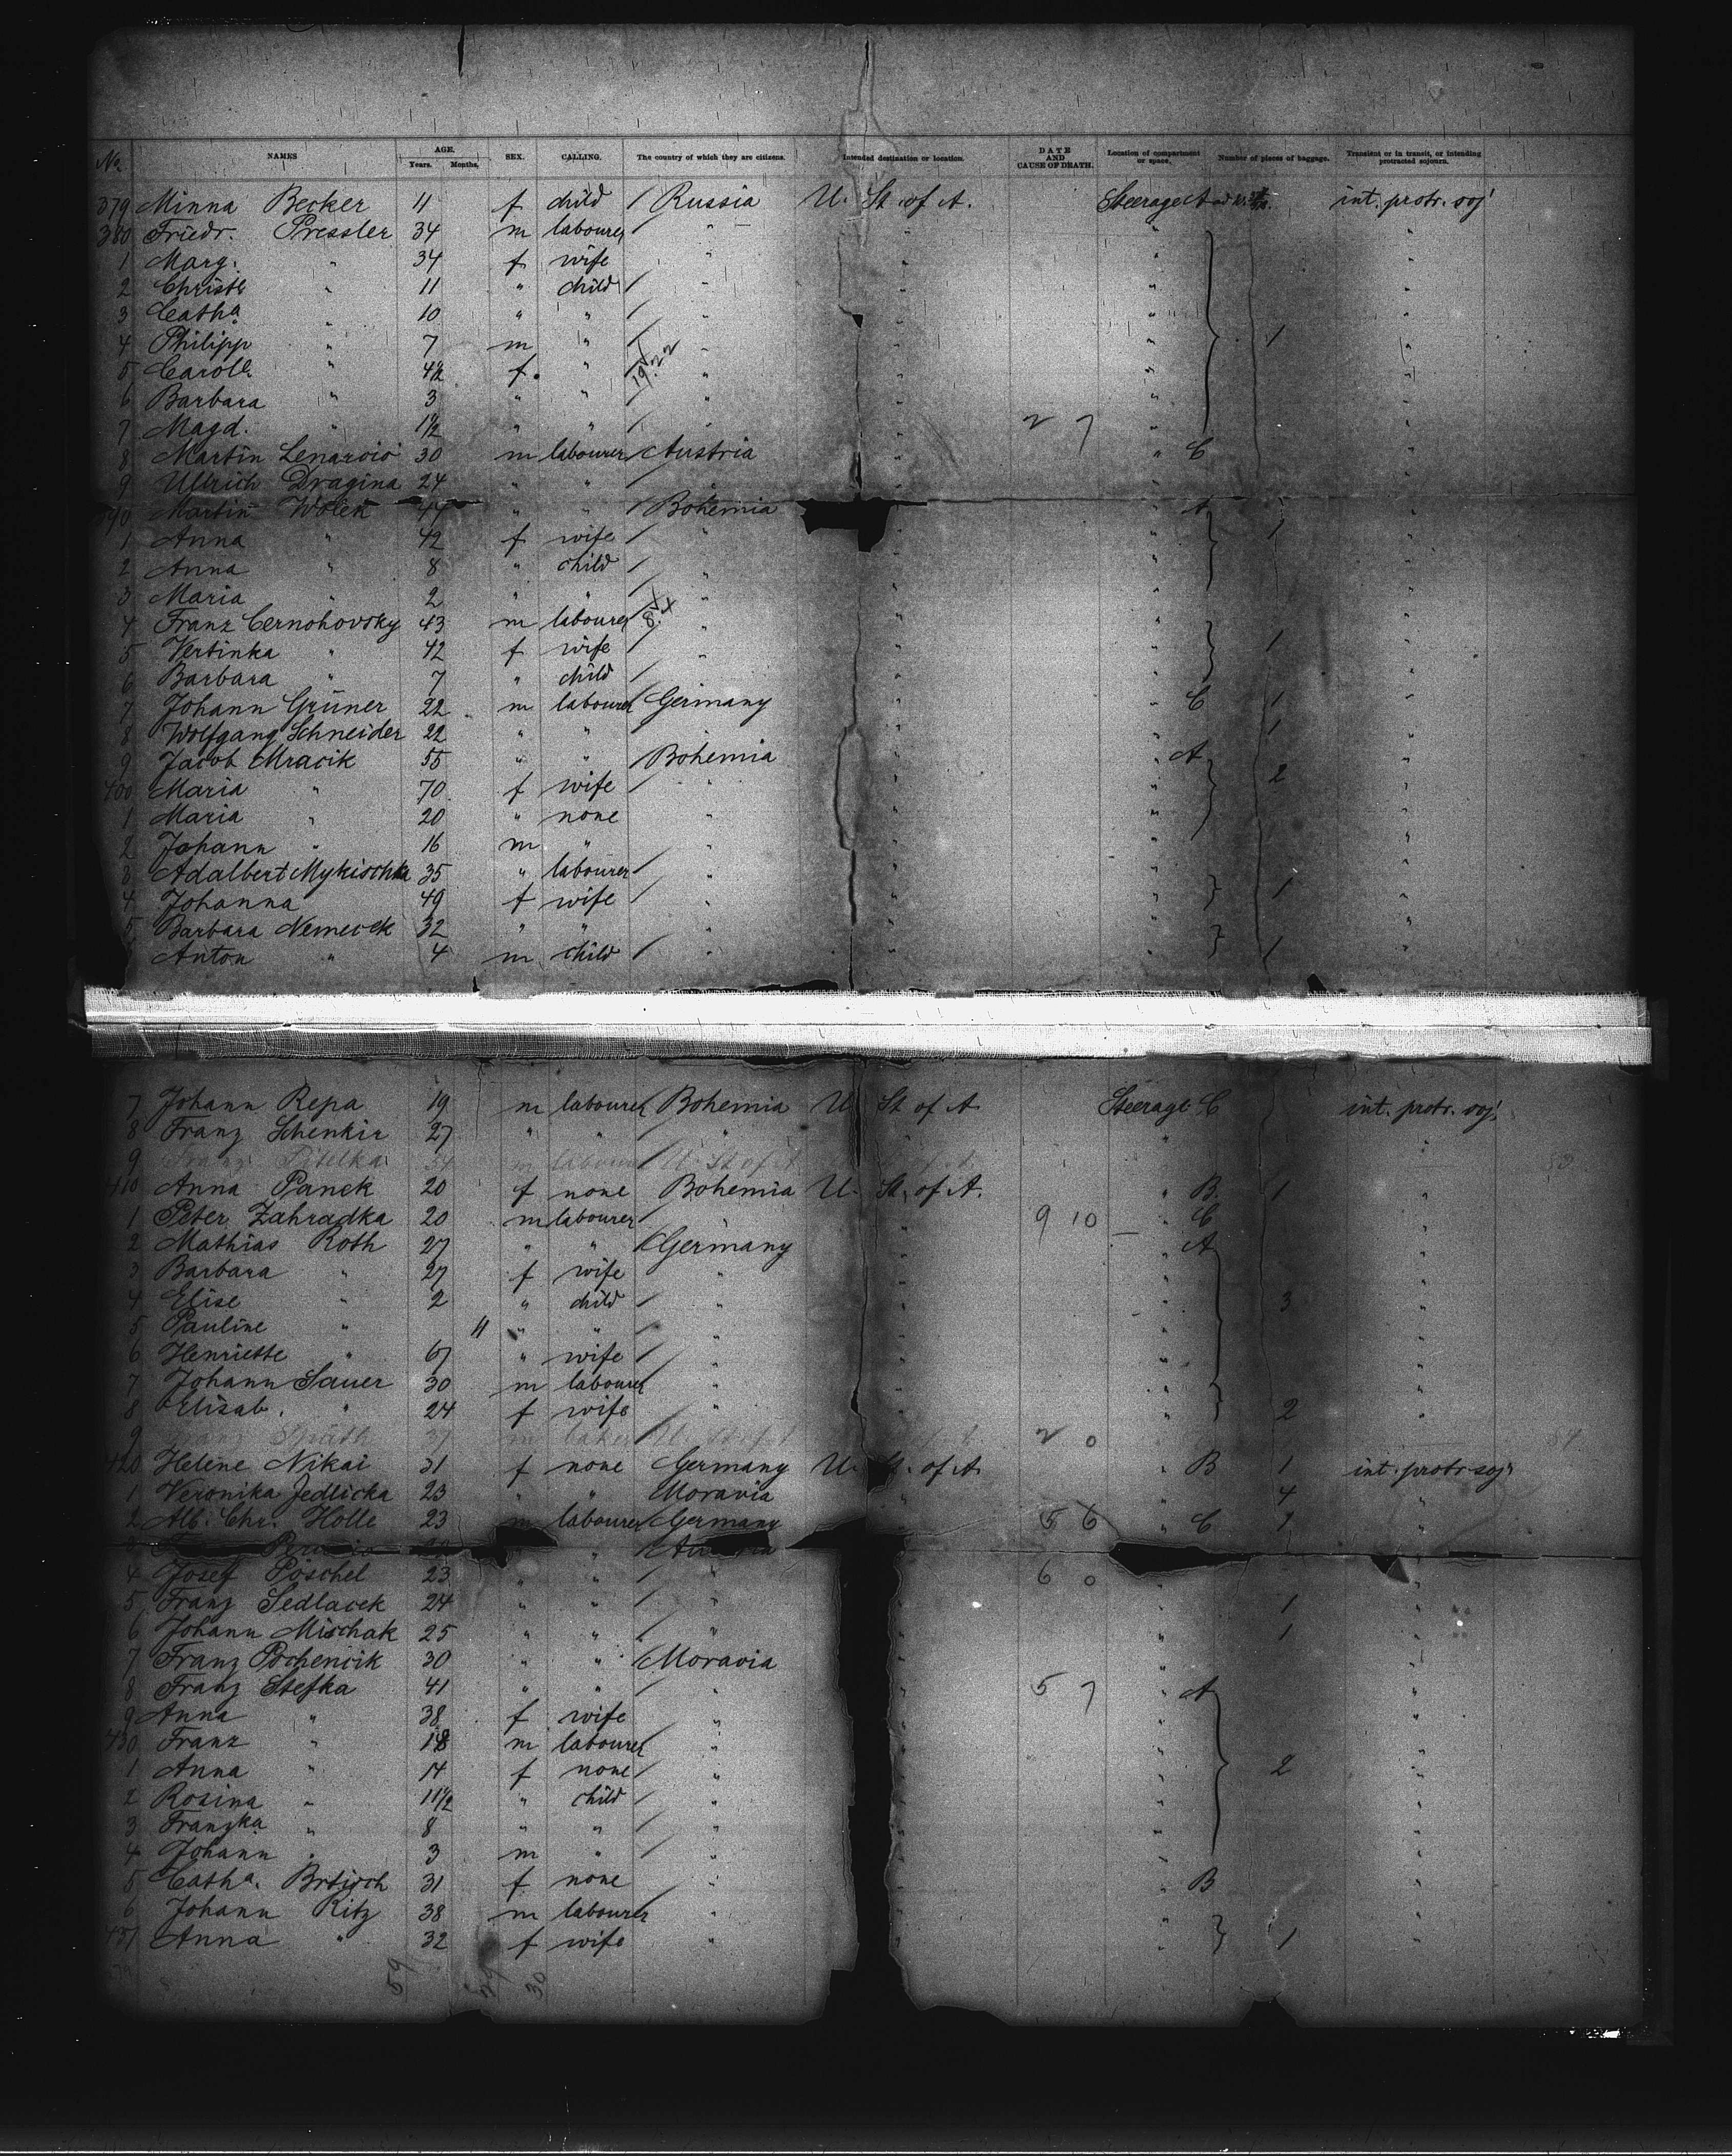 No. NAMES AGE. Years. Months. SEX. CALLING. The country of which they are citizens. Intended destination or location. DATE AND CAUSE OF DEATH. Location of compartment or space. Number of pieces of baggage. Transient or in transit, or intending protracted sojourn.
379 Minna Becker 11 f child / Russia U. St. of A. Steerage A int. protr. soj
380 Friedr. Pressler 34 m labourer / " " " "
1 Marg. " 34 f wife " " " "
2 Christe " 11 " child / " " " "
3 Catha " 10 " " / " " " "
4 Philipp " 7 m " / " " " 1 "
5 Carole " 4½ f. " / " " " "
6 Barbara " 3 " " / " " " "
7 Magd. " 1½ " " / " " 2 7 " "
8 Martin Lenarcic 30 m labourer / Austria " " C "
9 Ullrich Dragina 24 " " / " " " "
390 Martin Wolek 44 " " / Bohemia A "
1 Anna " 42 f wife / " " " 1 "
2 Anna " 8 " child / " " " "
3 Maria " 2 " " " " " "
4 Franz Cernohovsky 43 m labourer " " " "
5 Vertinka " 42 f wife / " " " 1 "
6 Barbara " 7 " child / " " " "
7 Johann Grüner 22 m labourer Germany " " C 1 "
8 Wolfgang Schneider 22 " " " " 1 "
9 Jacob Mracik 55 " " / Bohemia " A "
400 Maria " 70 f wife / " " " 2 "
1 Maria " 20 " none " " " "
2 Johann " 16 m " " " " "
3 Adalbert Mykischka 35 " labourer / " " " "
4 Johanna 49 f wife / " " " 1 "
5 Barbara Nemecek 32 " " " " " "
Anton " 4 m child / " " " 1 "
7 Johann Repa 19 m labourer / Bohemia U. St of A Steerage C int. protr. soj.
8 Franz Schenkir 27 " " / " " " "
9 34 m labourer / U. St of A. 53
410 Anna Panek 20 f none Bohemia U. St. of A. " B. 1 "
1 Peter Zahradka 20 m labourer / " 9 10 — " C "
2 Mathias Roth 27 " " / Germany " " A "
3 Barbara " 27 f wife / " " " "
4 Elise " 2 " child / " " " 3 "
5 Pauline " 11 " " / " " " "
6 Henriette " 67 " wife / " " " "
7 Johann Sauer 30 m labourer / " " " "
8 Elisab. " 24 f wife / " " " 2 "
9 Franz 37 m baker 2 0 54
420 Helene Nikai 31 f none Germany U. St. of A " B 1 int. protr. soj.
1 Veronika Jedlicka 23 " " Moravia " " 4 "
2 Alb. Chr. Holle 23 m labourer / Germany " 5 6 " C 1 "
" /
4 Josef Pöschel 23 " " / " 6 0 " "
5 Franz Sedlacek 24 " " / " " " 1 "
6 Johann Mischak 25 " " / " " " 1 "
7 Franz Pochencik 30 " " / Moravia " " "
8 Franz Stefka 41 " " / " " 5 7 " A "
9 Anna " 38 f wife / " " " "
430 Franz " 18 m labourer / " " " "
1 Anna " 14 f none / " " " 2 "
2 Rosina " 11½ " child / " " " "
3 Franzka " 8 " " / " " " "
4 Johann " 3 m " / " " " "
5 Catha. Brtisch 31 f none " " " B "
6 Johann Ritz 38 m labourer / " " " "
437 Anna " 32 f wife " " " 1 "
59 30